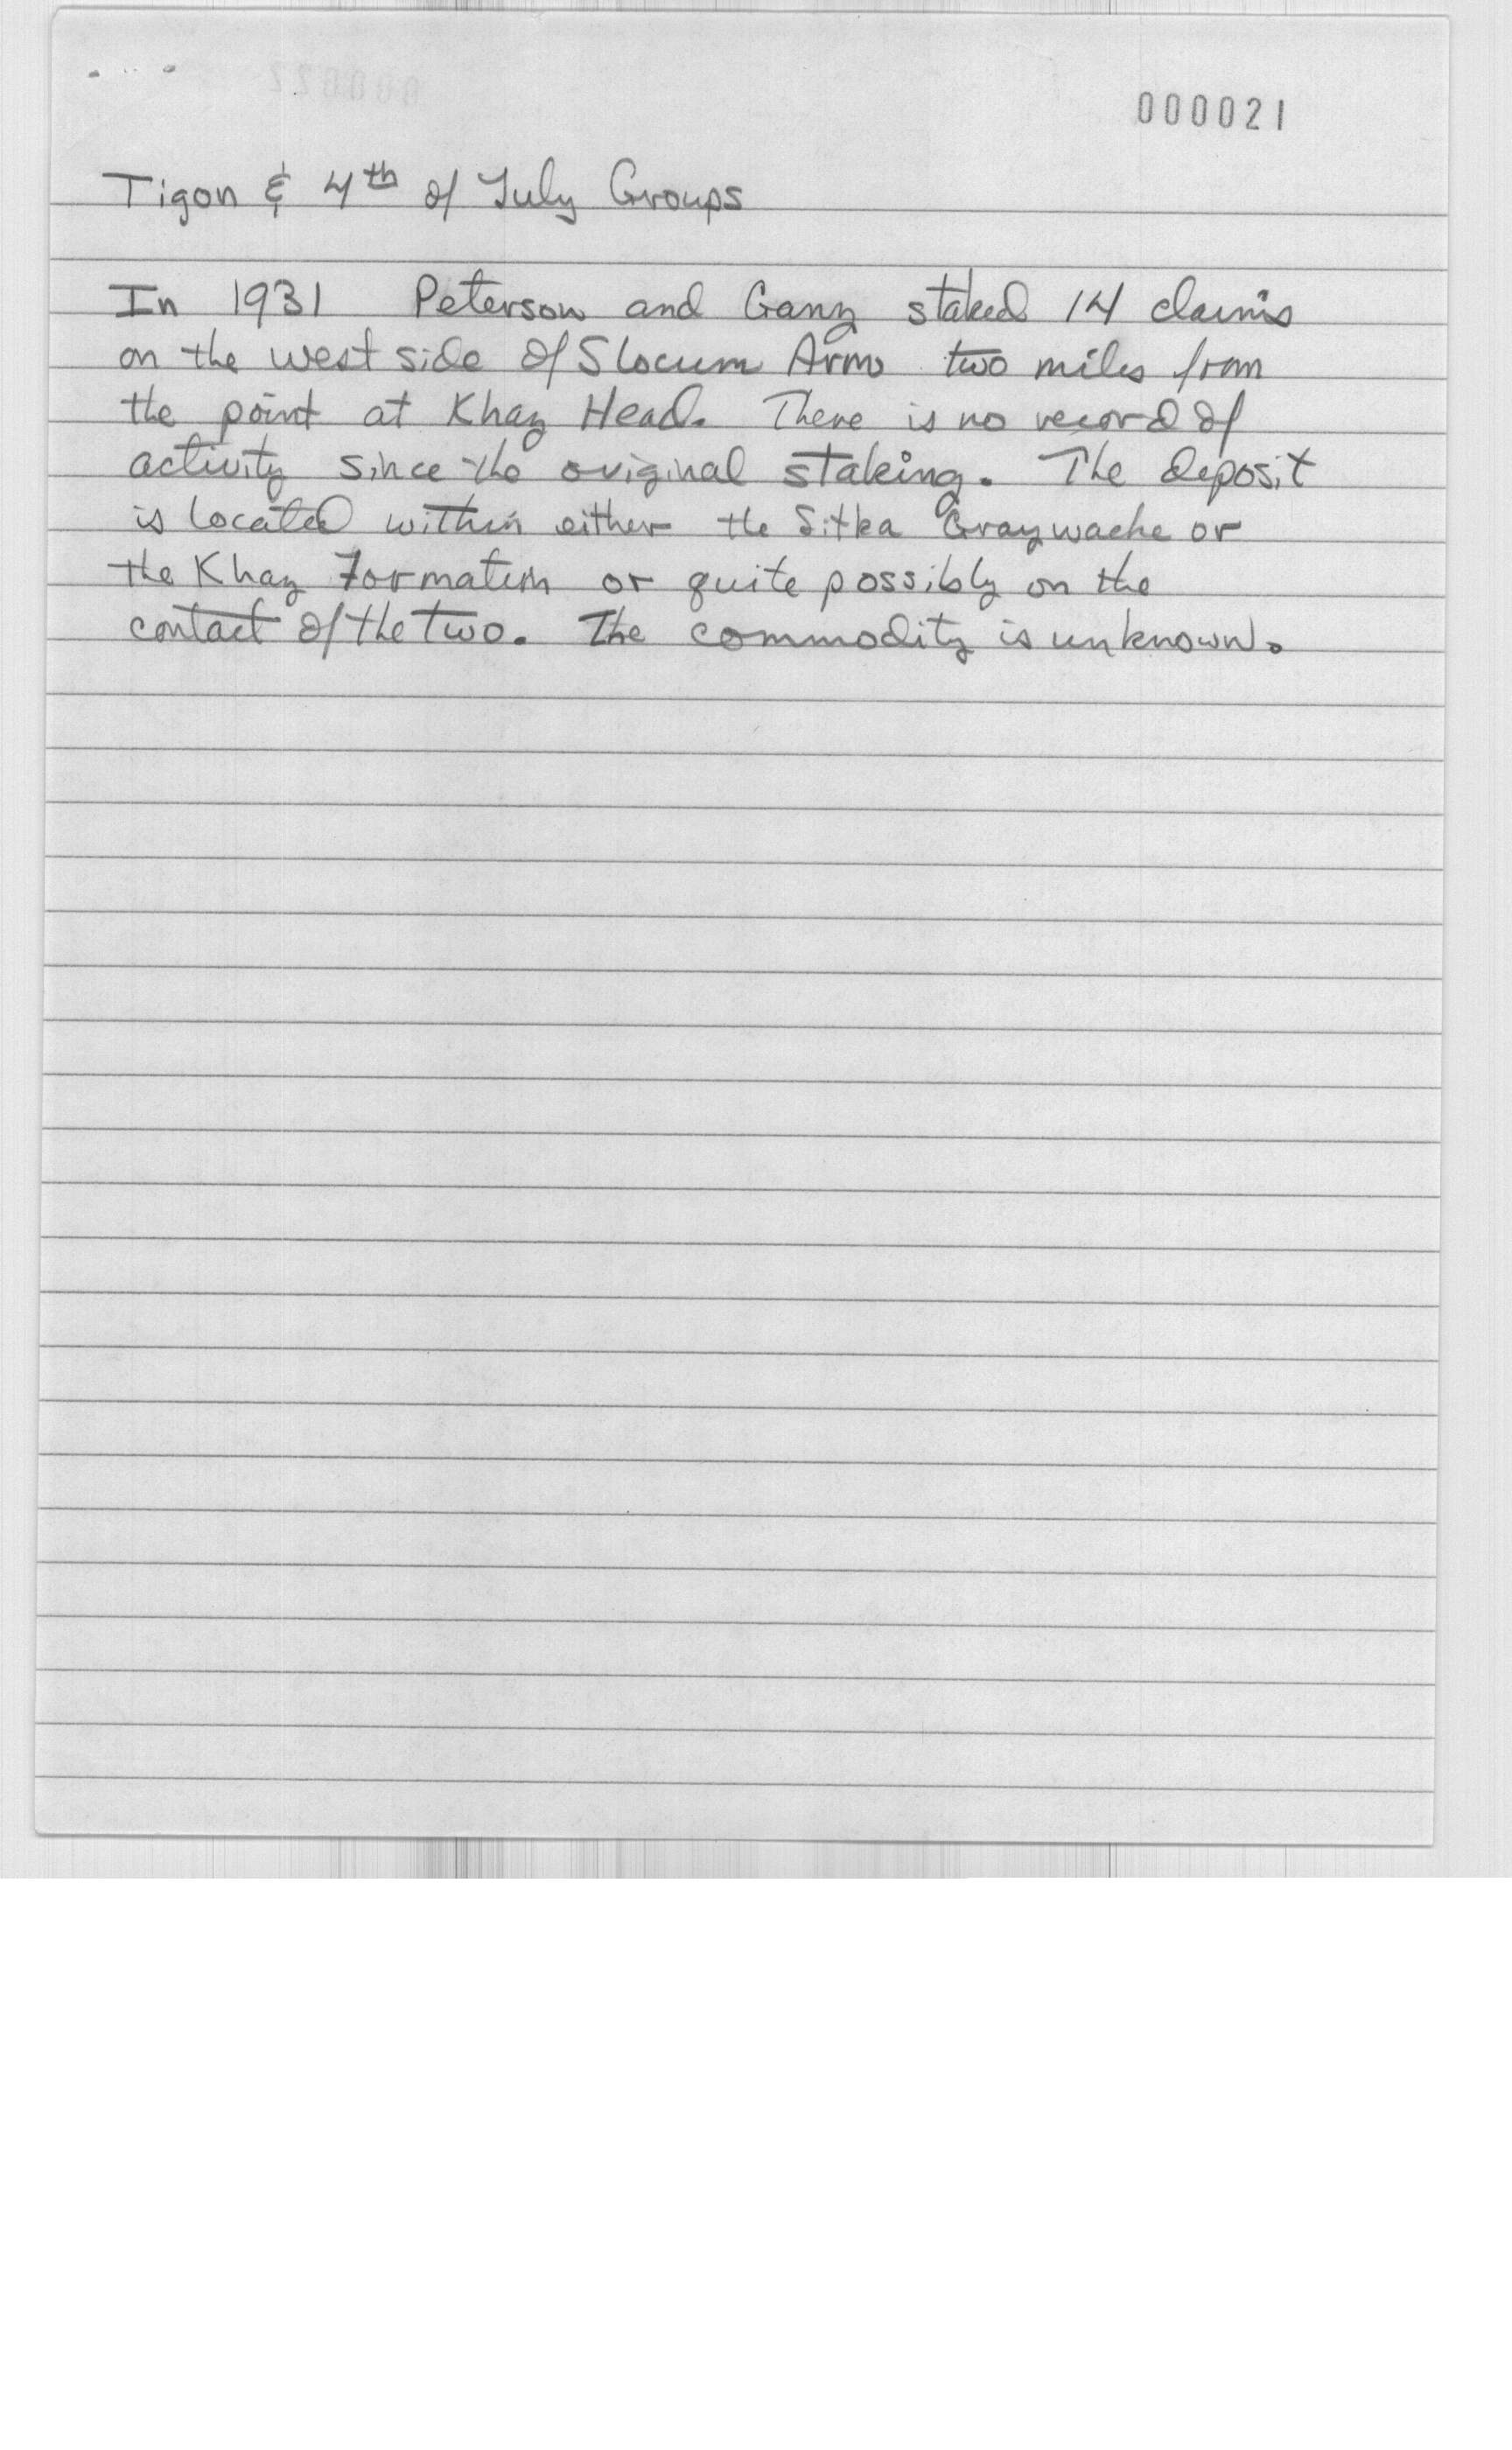 000021
Tigon & 4th of July Groups
In 1931 Peterson and Ganz staked 14 claims
on the west side of Slocum Arm two miles from
the point at Khaz Head. There is no record of
activity since the original staking. The deposit
is located within either the Sitka Graywacke or
the Khaz Formation or quite possibly on the
contact of the two. The commodity is unknown.